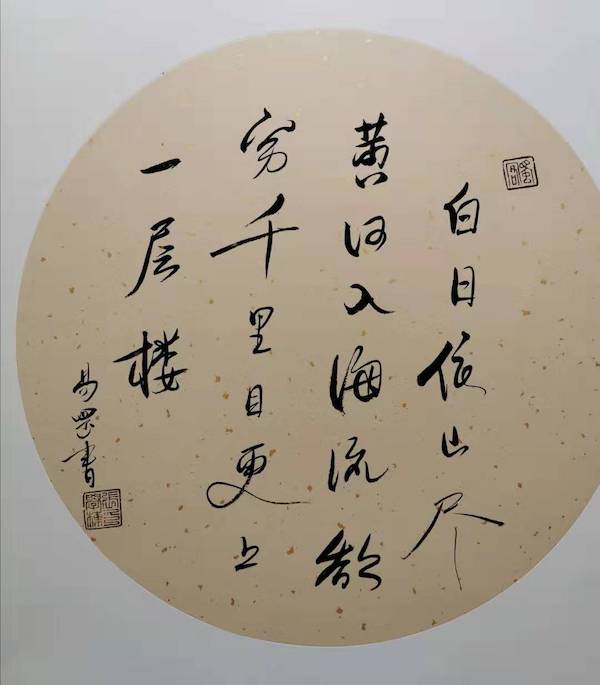 白日依山尽
黄河入海流欲
穷千里目更上
一层楼
易罡书